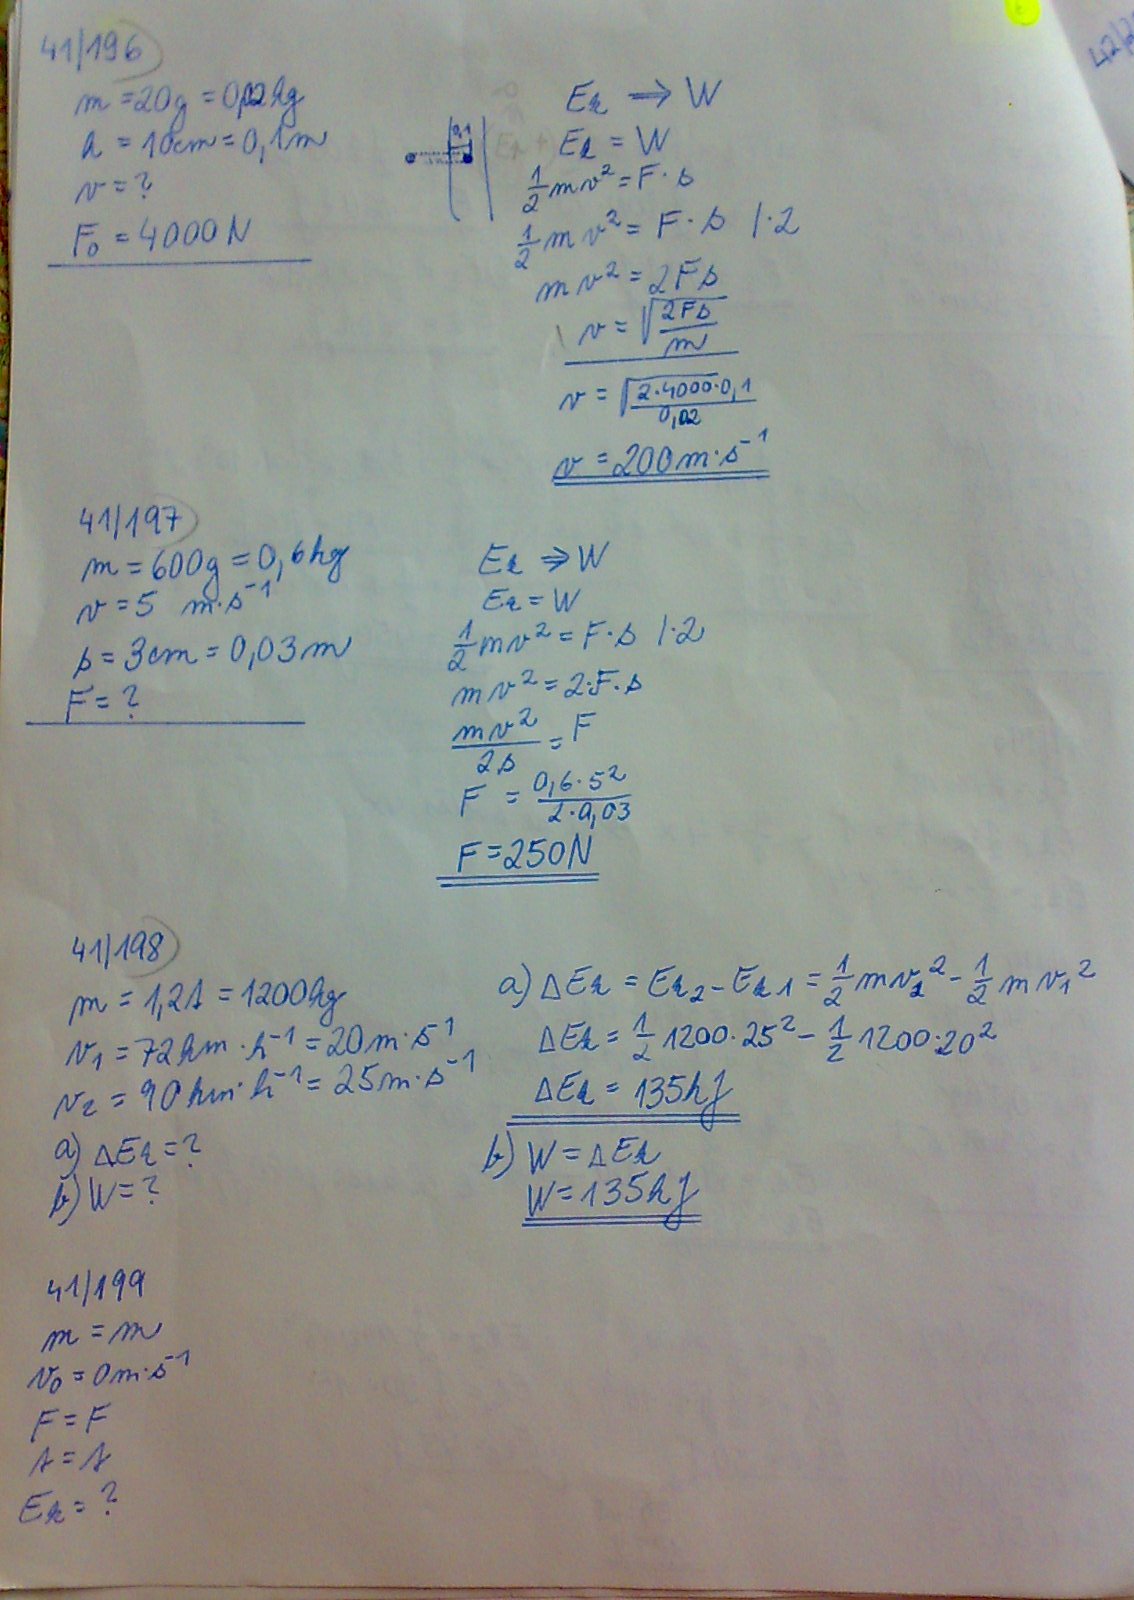 41/196
m = 20g = 0,02kg
h = 10cm = 0,1m
v = ?
F₀ = 4000N
0,1
Eₖ ⇒ W
Eₖ = W
1/2 mv² = F·s
1/2 mv² = F·s /·2
mv² = 2Fs
v = √(2Fs/m)
v = √(2·4000·0,1/0,02)
v = 200m·s⁻¹
41/197
m = 600g = 0,6kg
v = 5 m·s⁻¹
s = 3cm = 0,03m
F = ?
Eₖ ⇒ W
Eₖ = W
1/2 mv² = F·s /·2
mv² = 2·F·s
mv²/2s = F
F = 0,6·5²/2·0,03
F = 250N
41/198
m = 1,2t = 1200kg
v₁ = 72km·h⁻¹ = 20m·s⁻¹
v₂ = 90km·h⁻¹ = 25m·s⁻¹
a) ΔEₖ = ?
b) W = ?
a) ΔEₖ = Eₖ₂ - Eₖ₁ = 1/2 mv₂² - 1/2 mv₁²
ΔEₖ = 1/2 1200·25² - 1/2 1200·20²
ΔEₖ = 135kJ
b) W = ΔEₖ
W = 135kJ
41/199
m = m
v₀ = 0m·s⁻¹
F = F
t = t
Eₖ = ?